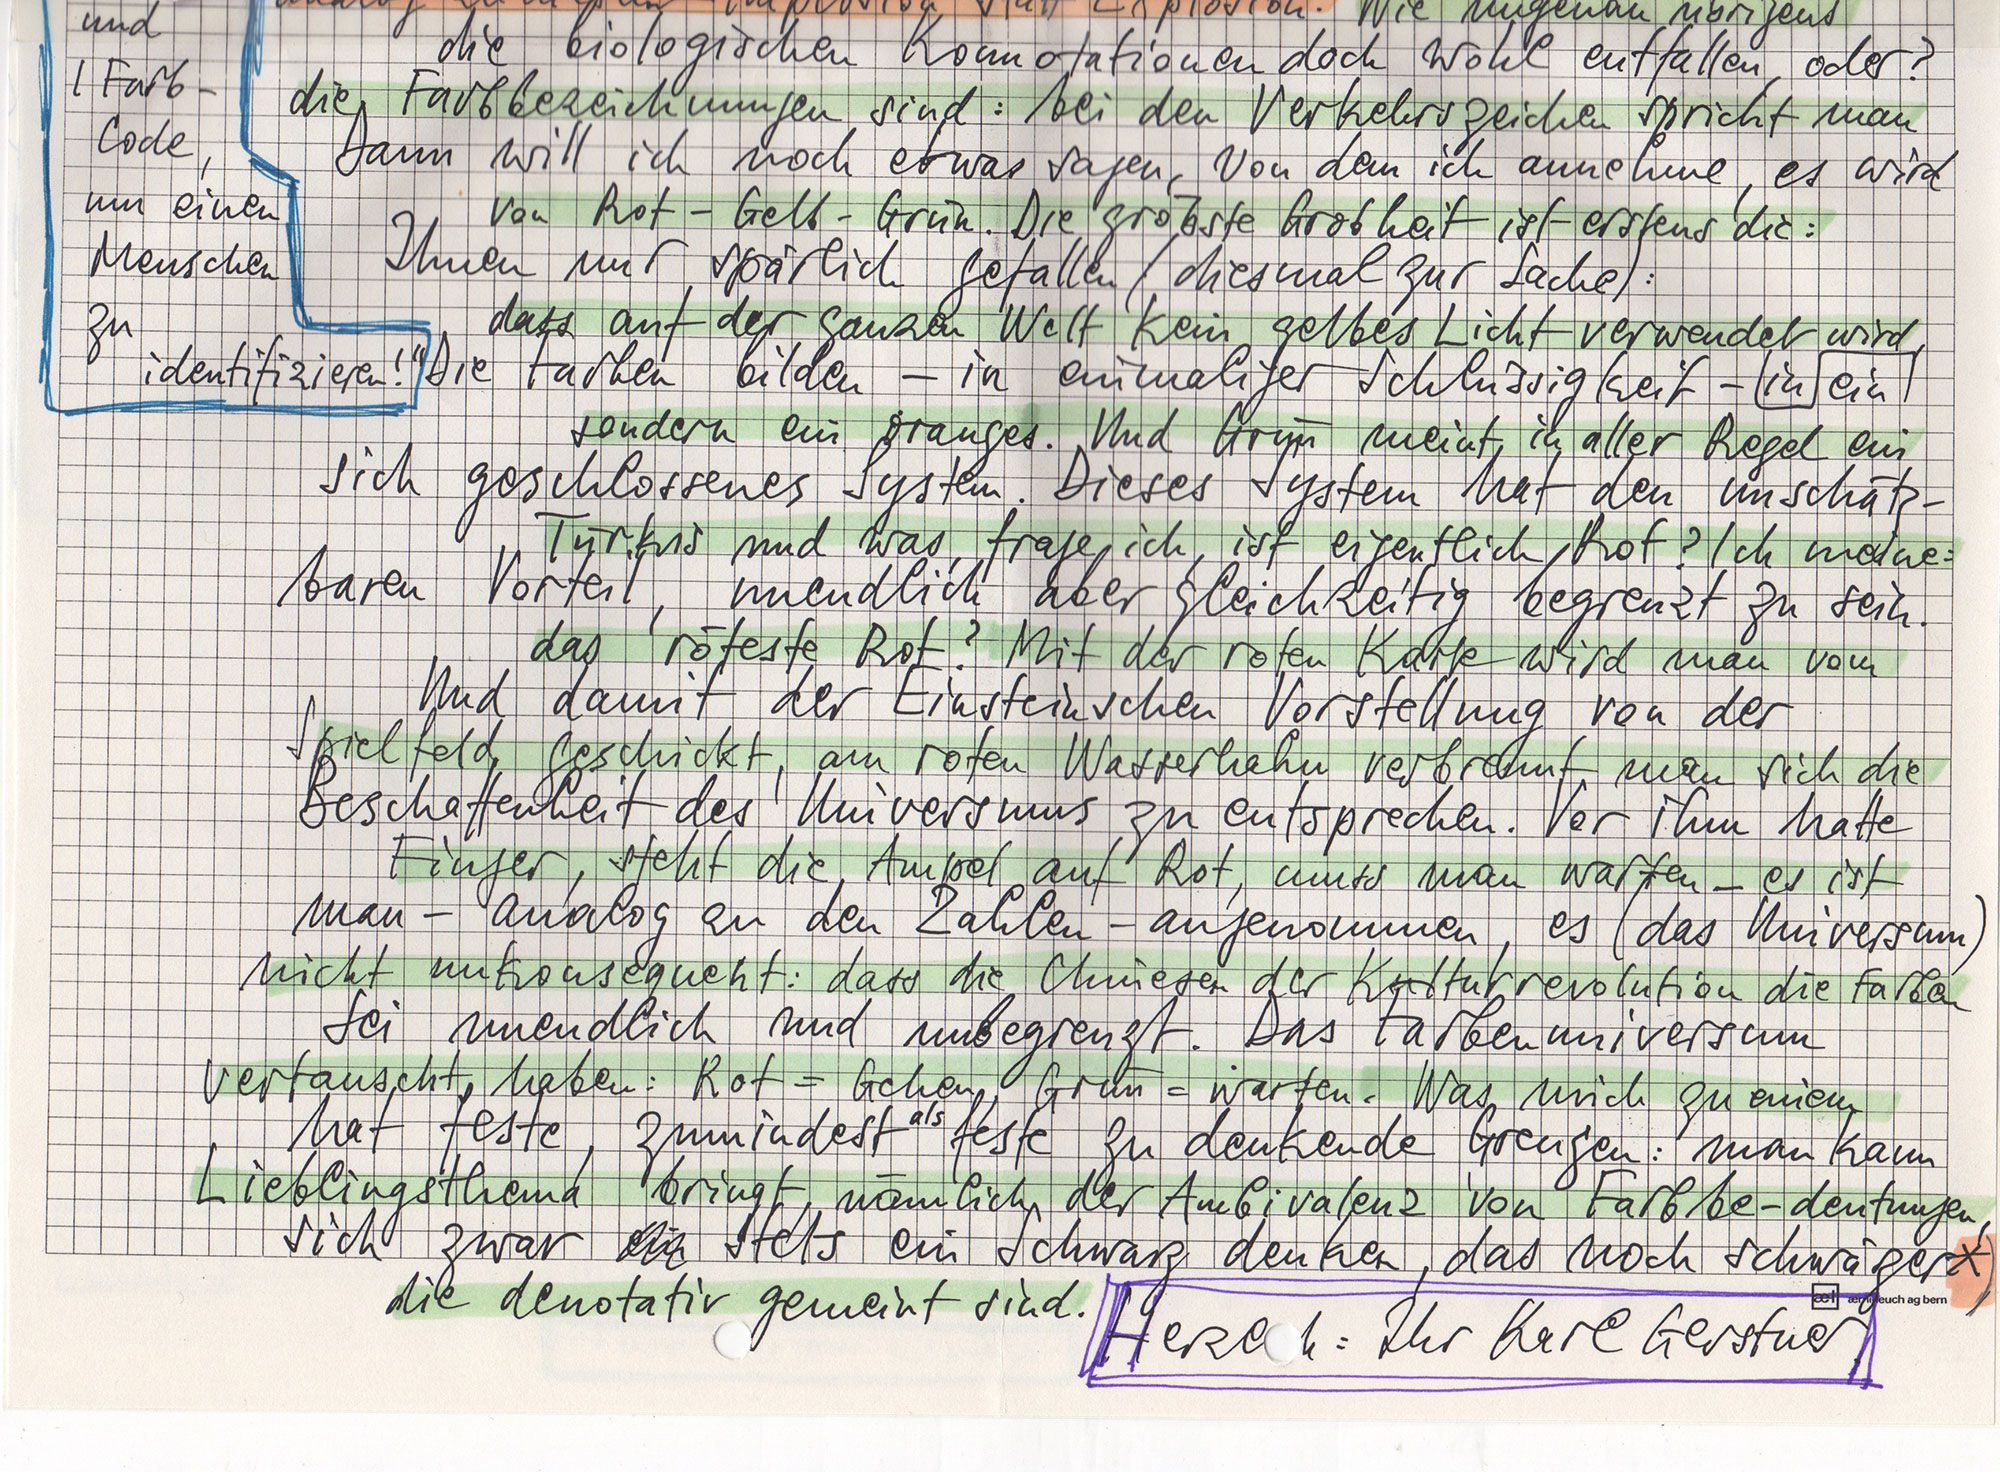 und
! Farb-
Code,
um einen
Menschen
zu
identifizieren!"
Implosion statt Explosion. Wie ungenau übrigens
die biologischen Konnotationen doch wohl entfallen, oder?
die Farbbezeichnungen sind: bei den Verkehrszeichen spricht man
Dann will ich noch etwas sagen, von dem ich annehme, es wird
von Rot – Gelb – Grün. Die gröbste Grobheit ist erstens die:
Ihnen nur spärlich gefallen (diesmal zur Sache):
dass auf der ganzen Welt kein gelbes Licht verwendet wird,
Die Farben bilden – in einmaliger Schlüssigkeit – in ein
sondern ein oranges. Und Grün meint in aller Regel ein
sich geschlossenes System. Dieses System hat den unschätz-
Türkis und was, frage ich, ist eigentlich Rot? Ich meine:
baren Vorteil, unendlich aber gleichzeitig begrenzt zu sein.
das röteste Rot? Mit der roten Karte wird man vom
Und damit der Einsteinschen Vorstellung von der
Spielfeld geschickt, am roten Wasserhahn verbrennt man sich die
Beschaffenheit des Universums zu entsprechen. Vor ihm hatte
Finger, steht die Ampel auf Rot, muss man warten – es ist
man – analog zu den Zahlen – angenommen, es (das Universum)
nicht unkonsequent: dass die Chinesen der Kulturrevolution die Farben
sei unendlich und unbegrenzt. Das Farbenuniversum
vertauscht haben: Rot = Gehen, Grün = warten. Was mich zu einem
hat feste, zumindest als feste zu denkende Grenzen: man kann
Lieblingsthema bringt, nämlich der Ambivalenz von Farbbe-deutungen,
sich zwar stets ein Schwarz denken, das noch schwärzer X)
die denotativ gemeint sind.
Herzlich: Ihr Karl Gerstner